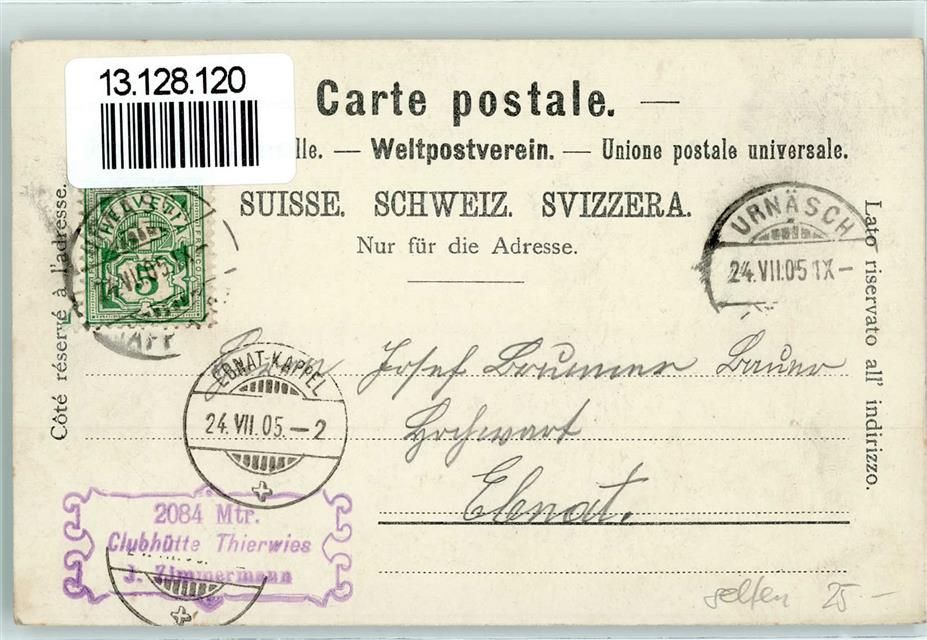 13.128.120
Carte postale. —
lle. — Weltpostverein. — Unione postale universale.
SUISSE. SCHWEIZ. SVIZZERA.
Nur für die Adresse.
Côté réservé à l'adresse.
Lato riservato all' indirizzo.
HELVETIA
FRANCO
5
VII.05 IX
URNÄSCH
24.VII.05 IX-
EBNAT-KAPPEL
24.VII.05.-2
Herrn Josef Brunner Bauer
Hochwart
Ebnat.
2084 Mtr.
Clubhütte Thierwies
J. Zimmermann
selten 25 -